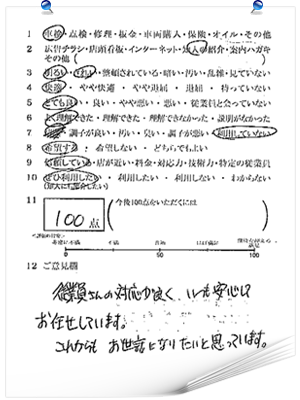 1 車検・点検・修理・板金・車両購入・保険・オイル・その他
2 広告チラシ・店頭看板・インターネット・知人の紹介・案内ハガキ
その他(
3 明るい・きれい・整頓されている・暗い・汚い・乱雑・見ていない
4 快適・やや快適・やや退屈・退屈・待っていない
5 とても良い・良い・やや悪い・悪い・従業員と会っていない
6 よく理解できた・理解できた・理解できなかった・説明がなかった
7 調子が良い・汚い・臭い・調子が悪い・利用していない
8 希望する・希望しない・どちらでもよい
9 信頼している・店が近い・料金・対応力・技術力・特定の従業員
10 ぜひ利用したい・利用したい・利用しない・わからない
11 100点
今後100点をいただくには
0 50 100
12 ご意見欄
従業員さんの対応が良く、いつも安心して
お任せしています。
これからも お世話になりたいと思っています。